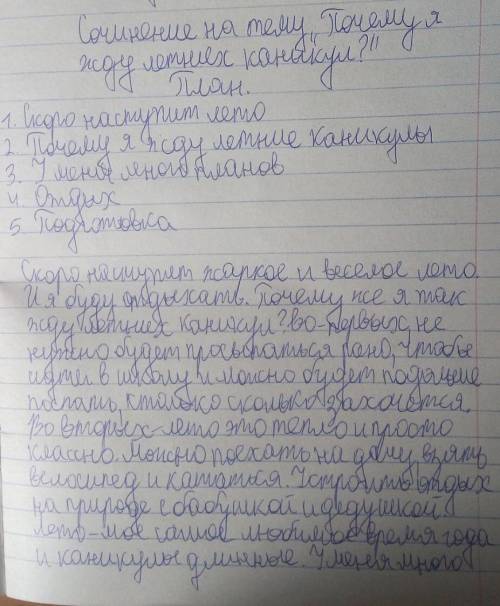 Сочинение на тему „Почему я
жду летних каникул?"
План.
1. Скоро наступит лето
2. Почему я жду летние каникулы
3. У меня много планов
4. Отдых
5. Подготовка
Скоро наступит жаркое и веселое лето.
И я буду отдыхать. Почему же я так
жду летних каникул? Во-первых, не
нужно будет просыпаться рано, чтобы
идти в школу и можно будет подольше
поспать, столько сколько захочется.
Во вторых-лето это тепло и просто
классно. Можно поехать на дачу взять
велосипед и кататься. Устроить отдых
на природе с бабушкой и дедушкой.
Лето-мое самое любимое время года
и каникулы длинные. У меня много